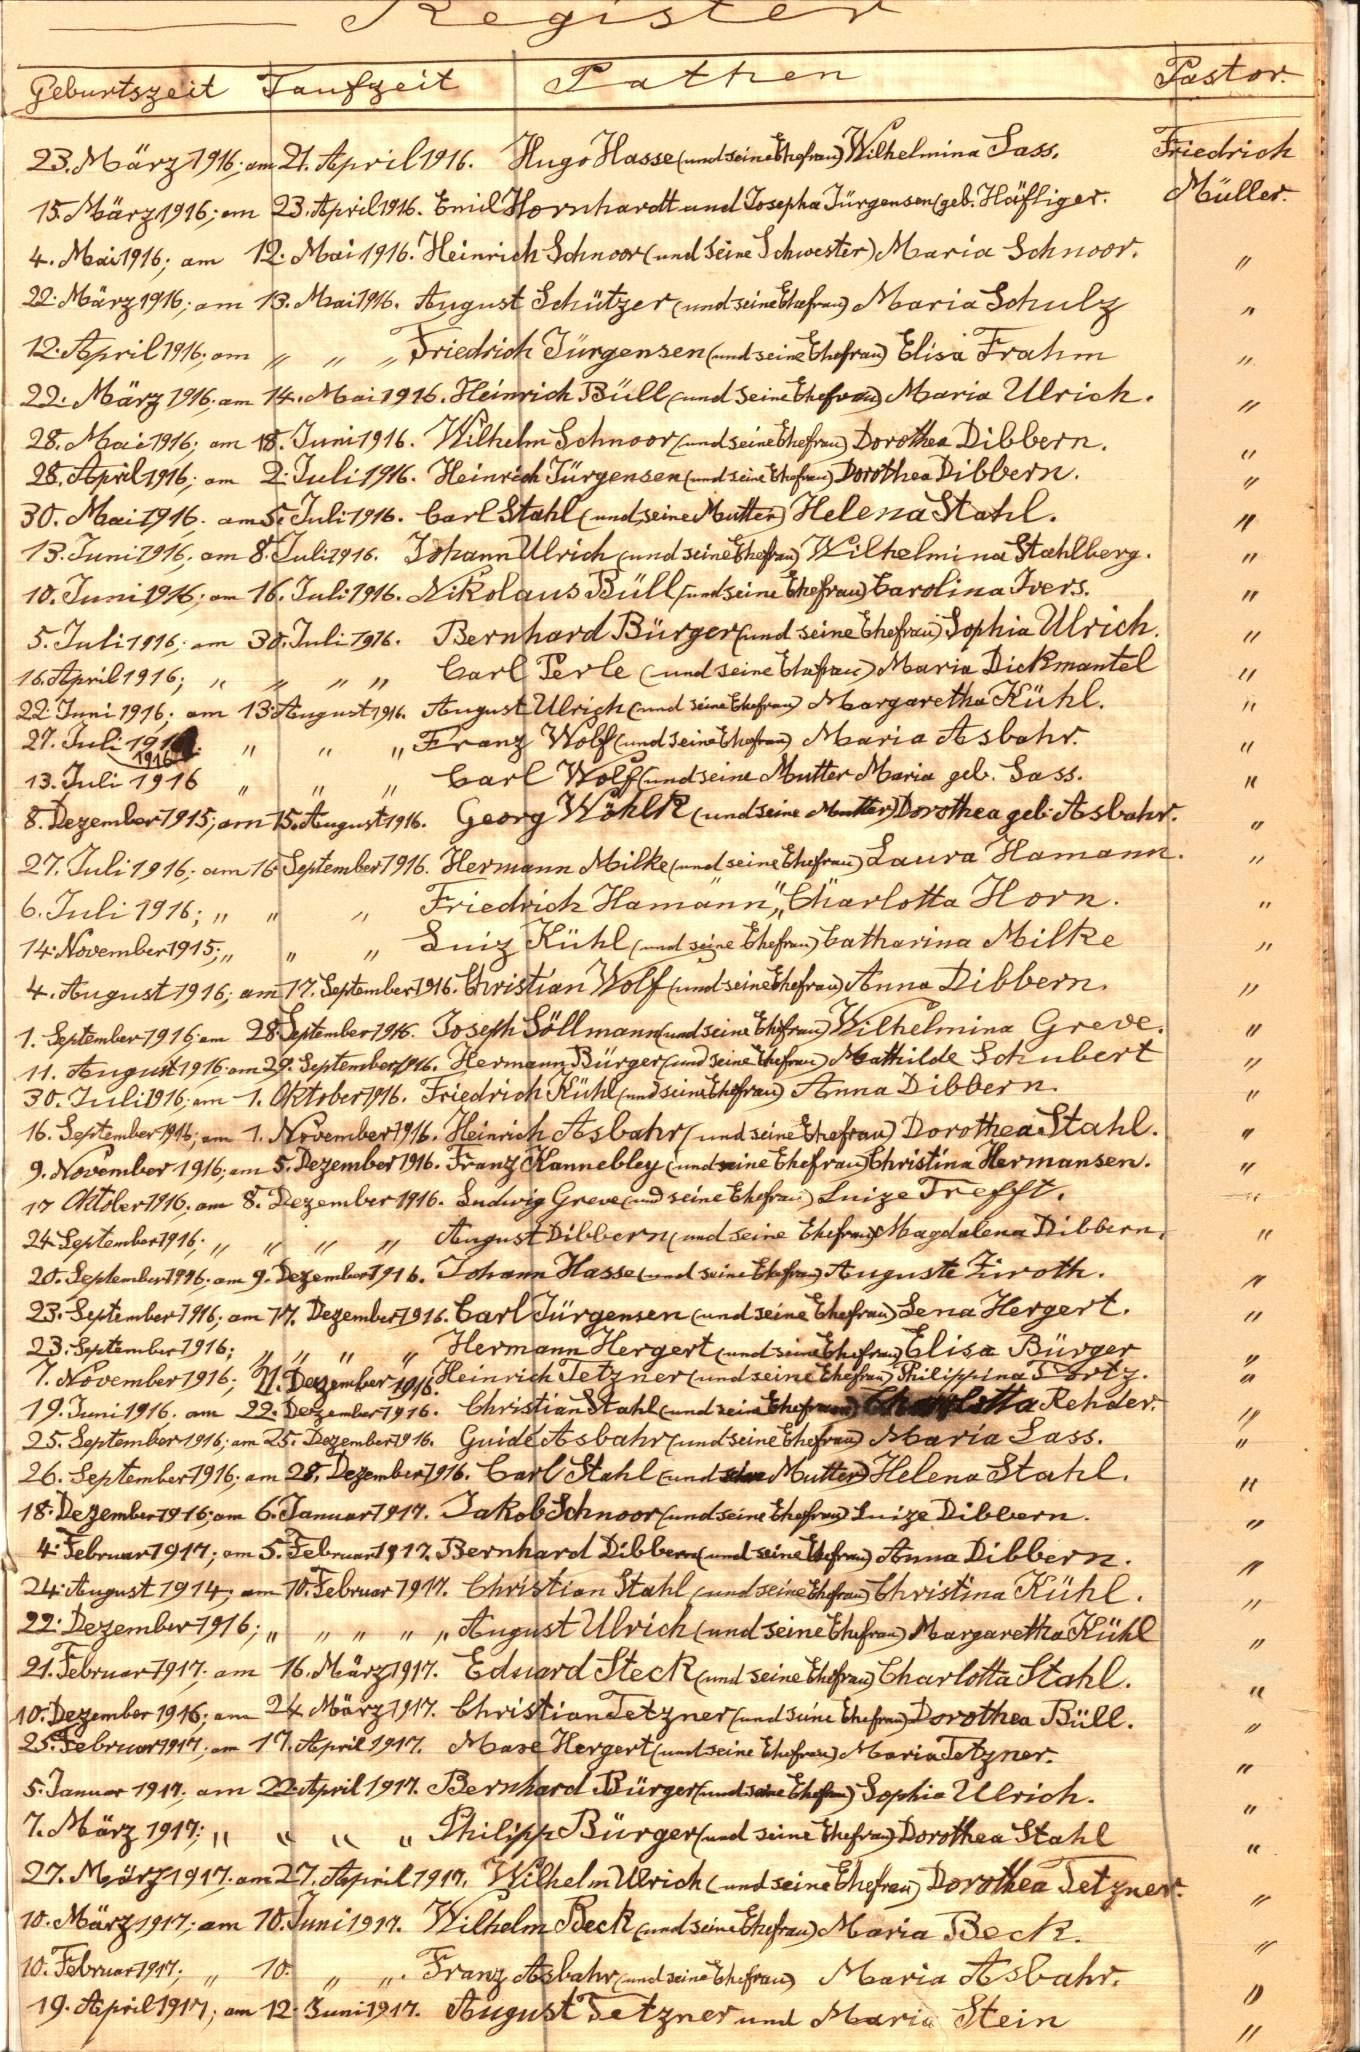 Register
Geburtszeit Taufzeit Pathen Pastor.
23. März 1916; am 21. April 1916. Hugo Hasse (und seine Ehefrau) Wilhelmina Sass. Friedrich
15. März 1916; am 23. April 1916. Emil Hornhardt und Josepha Jürgensen (geb. Häfliger. Müller.
4. Mai 1916; am 12. Mai 1916. Heinrich Schnoor (und seine Schwester) Maria Schnoor. "
22. März 1916; am 13. Mai 1916. August Schützer (und seine Ehefrau) Maria Schulz "
12. April 1916; am " " " Friedrich Jürgensen (und seine Ehefrau) Elisa Frahm "
22. März 1916; am 14. Mai 1916. Heinrich Büll (und seine Ehefrau) Maria Ulrich. "
28. Mai 1916; am 18. Juni 1916. Wilhelm Schnoor (und seine Ehefrau) Dorothea Dibbern. "
28. April 1916; am 2. Juli 1916. Heinrich Jürgensen (und seine Ehefrau) Dorothea Dibbern. "
30. Mai 1916. am 5. Juli 1916. Carl Stahl (und seine Mutter) Helena Stahl. "
13. Juni 1916; am 8. Juli 1916. Johann Ulrich (und seine Ehefrau) Wilhelmina Stahlberg. "
10. Juni 1916; am 16. Juli 1916. Nikolaus Büll (und seine Ehefrau) Carolina Ivers. "
5. Juli 1916; am 30. Juli 1916. Bernhard Bürger (und seine Ehefrau) Sophia Ulrich. "
16. April 1916; " " " " Carl Perle (und seine Ehefrau) Maria Dickmantel "
22. Juni 1916; am 13. August 1916. August Ulrich (und seine Ehefrau) Margaretha Kühl. "
27. Juli 1916 " " " Franz Wolf (und seine Ehefrau) Maria Asbahr. "
13. Juli 1916 " " " Carl Wolf (und seine Mutter Maria geb. Sass. "
8. Dezember 1915; am 15. August 1916. Georg Wöhlk (und seine Mutter) Dorothea geb. Asbahr. "
27. Juli 1916; am 16. September 1916. Hermann Milke (und seine Ehefrau) Laura Hamann. "
6. Juli 1916; " " " Friedrich Hamann " " Charlotta Horn. "
14. November 1915; " " " Luiz Kühl (und seine Ehefrau) Catharina Milke "
4. August 1916; am 17. September 1916. Christian Wolf (und seine Ehefrau) Anna Dibbern. "
1. September 1916; am 28. September 1916. Joseph Söllmann (und seine Ehefrau) Wilhelmina Greve. "
11. August 1916; am 29. September 1916. Hermann Bürger (und seine Ehefrau) Mathilde Schubert "
30. Juli 1916; am 1. Oktober 1916. Friedrich Kühl (und seine Ehefrau) Anna Dibbern. "
16. September 1916; am 1. November 1916. Heinrich Asbahr (und seine Ehefrau) Dorothea Stahl. "
9. November 1916; am 5. Dezember 1916. Franz Kannebley (und seine Ehefrau) Christina Hermansen. "
17 Oktober 1916; am 8. Dezember 1916. Ludwig Greve (und seine Ehefrau) Luize Trefft. "
24. September 1916; " " " " August Dibbern (und seine Ehefrau) Magdalena Dibbern. "
20. September 1916; am 9. Dezember 1916. Johann Hasse (und seine Ehefrau) Auguste Ziroth. "
23. September 1916; am 17. Dezember 1916. Carl Jürgensen (und seine Ehefrau) Lena Hergert. "
23. September 1916; " " " " Hermann Hergert (und seine Ehefrau) Elisa Bürger "
7. November 1916; 21. Dezember 1916. Heinrich Tetzner (und seine Ehefrau) Philippina Portz. "
19. Juni 1916. am 22. Dezember 1916. Christian Stahl (und seine Ehefrau) Charlotta Rehder. "
25. September 1916; am 25. Dezember 1916. Guide Asbahr (und seine Ehefrau) Maria Lass. "
26. September 1916; am 28. Dezember 1916. Carl Stahl (und seine Mutter) Helena Stahl. "
18. Dezember 1916; am 6. Januar 1917. Jakob Schnoor (und seine Ehefrau) Luize Dibbern. "
4. Februar 1917; am 5. Februar 1917. Bernhard Dibbern (und seine Ehefrau) Anna Dibbern. "
24. August 1914; am 10. Februar 1917. Christian Stahl (und seine Ehefrau) Christina Kühl. "
22. Dezember 1916; " " " " " August Ulrich (und seine Ehefrau) Margaretha Kühl "
21. Februar 1917; am 16. März 1917. Eduard Steck (und seine Ehefrau) Charlotta Stahl. "
10. Dezember 1916; am 24 März 1917. Christian Tetzner (und seine Ehefrau) Dorothea Büll. "
25. Februar 1917; am 17. April 1917. Maxe Hergert (und seine Ehefrau) Maria Tetzner. "
5. Januar 1917; am 22. April 1917. Bernhard Bürger (und seine Ehefrau) Sophia Ulrich. "
7. März 1917; " " " " Philipp Bürger (und seine Ehefrau) Dorothea Stahl "
27. März 1917. am 27. April 1917. Wilhelm Ulrich (und seine Ehefrau) Dorothea Tetzner. "
10. März 1917; am 10. Juni 1917. Wilhelm Beck (und seine Ehefrau) Maria Beck. "
10. Februar 1917; " 10. " " . Franz Asbahr (und seine Ehefrau) Maria Asbahr. "
19. April 1917; am 12. Juni 1917. August Tetzner und Maria Stein "